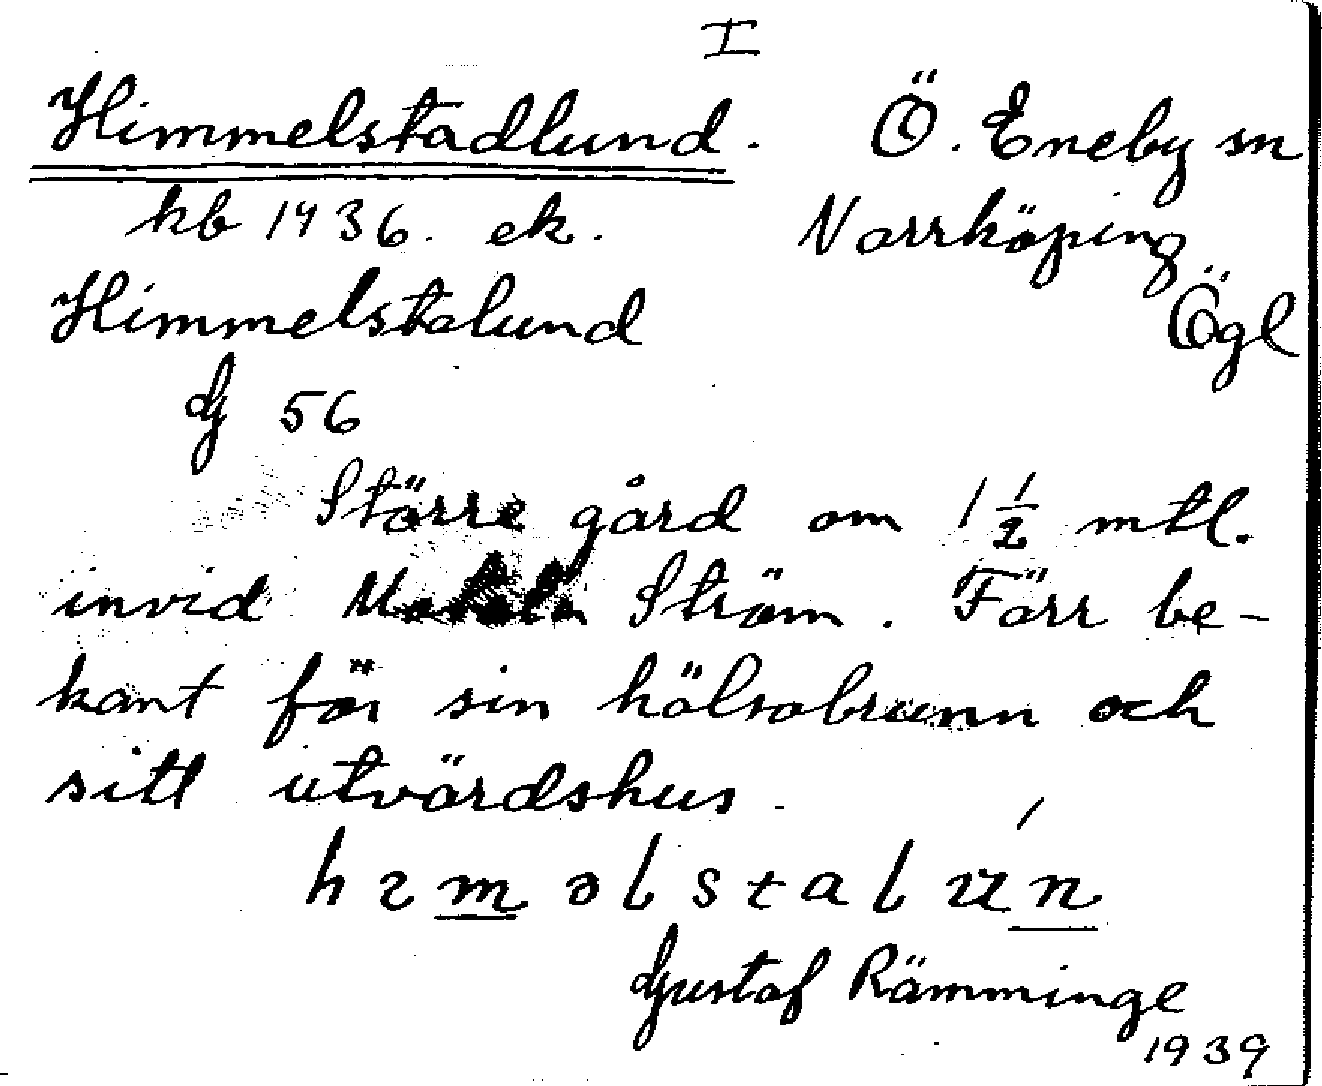 I
Himmelstadlund. Ö. Eneby sn
kb 1936. ek. Norrköping
Himmelstalund Ögl
G 56
Större gård om 1 1/2 mtl.
invid Motala Ström. Förr be-
kant för sin hälsobrunn och
sitt utvärdshus.
hɪməlstalún
Gustaf Rämminge
1939